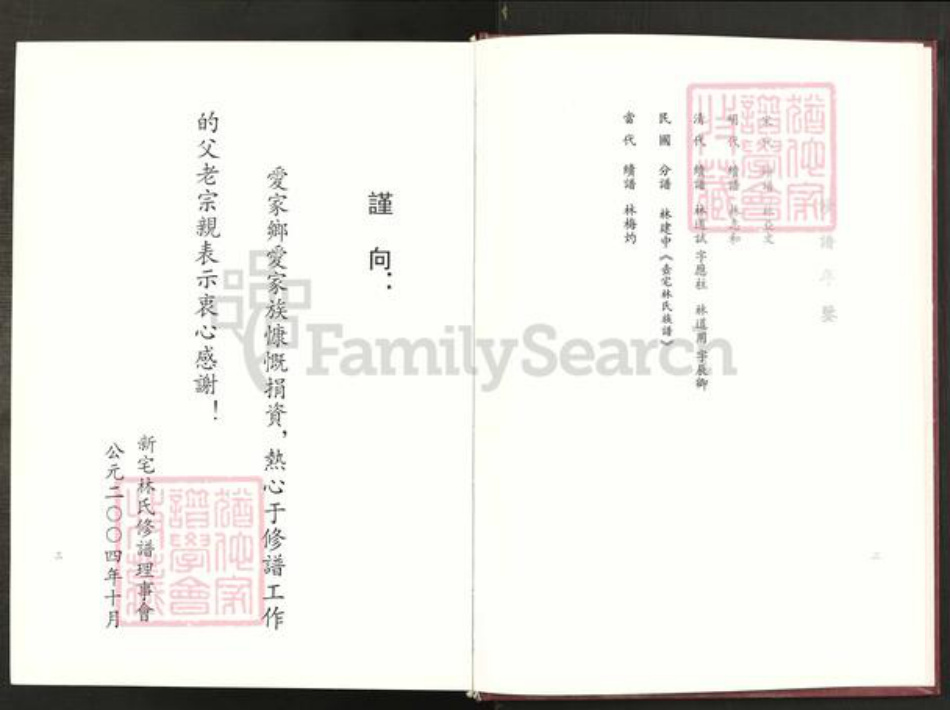 譜
宋代 林亞文
明代 續譜 林志和
清代 續譜 林道試 字應柱 林道用 字辰卿
民國 分譜 林建中《壺宅林氏族譜》
當代 續譜 林梅灼
謹向：
愛家鄉愛家族慷慨捐資，熱心于修譜工作
的父老宗親表示衷心感謝！
新宅林氏修譜理事會
公元二〇〇四年十月
猶他家譜學會收藏
猶他家譜學會收藏
FamilySearch